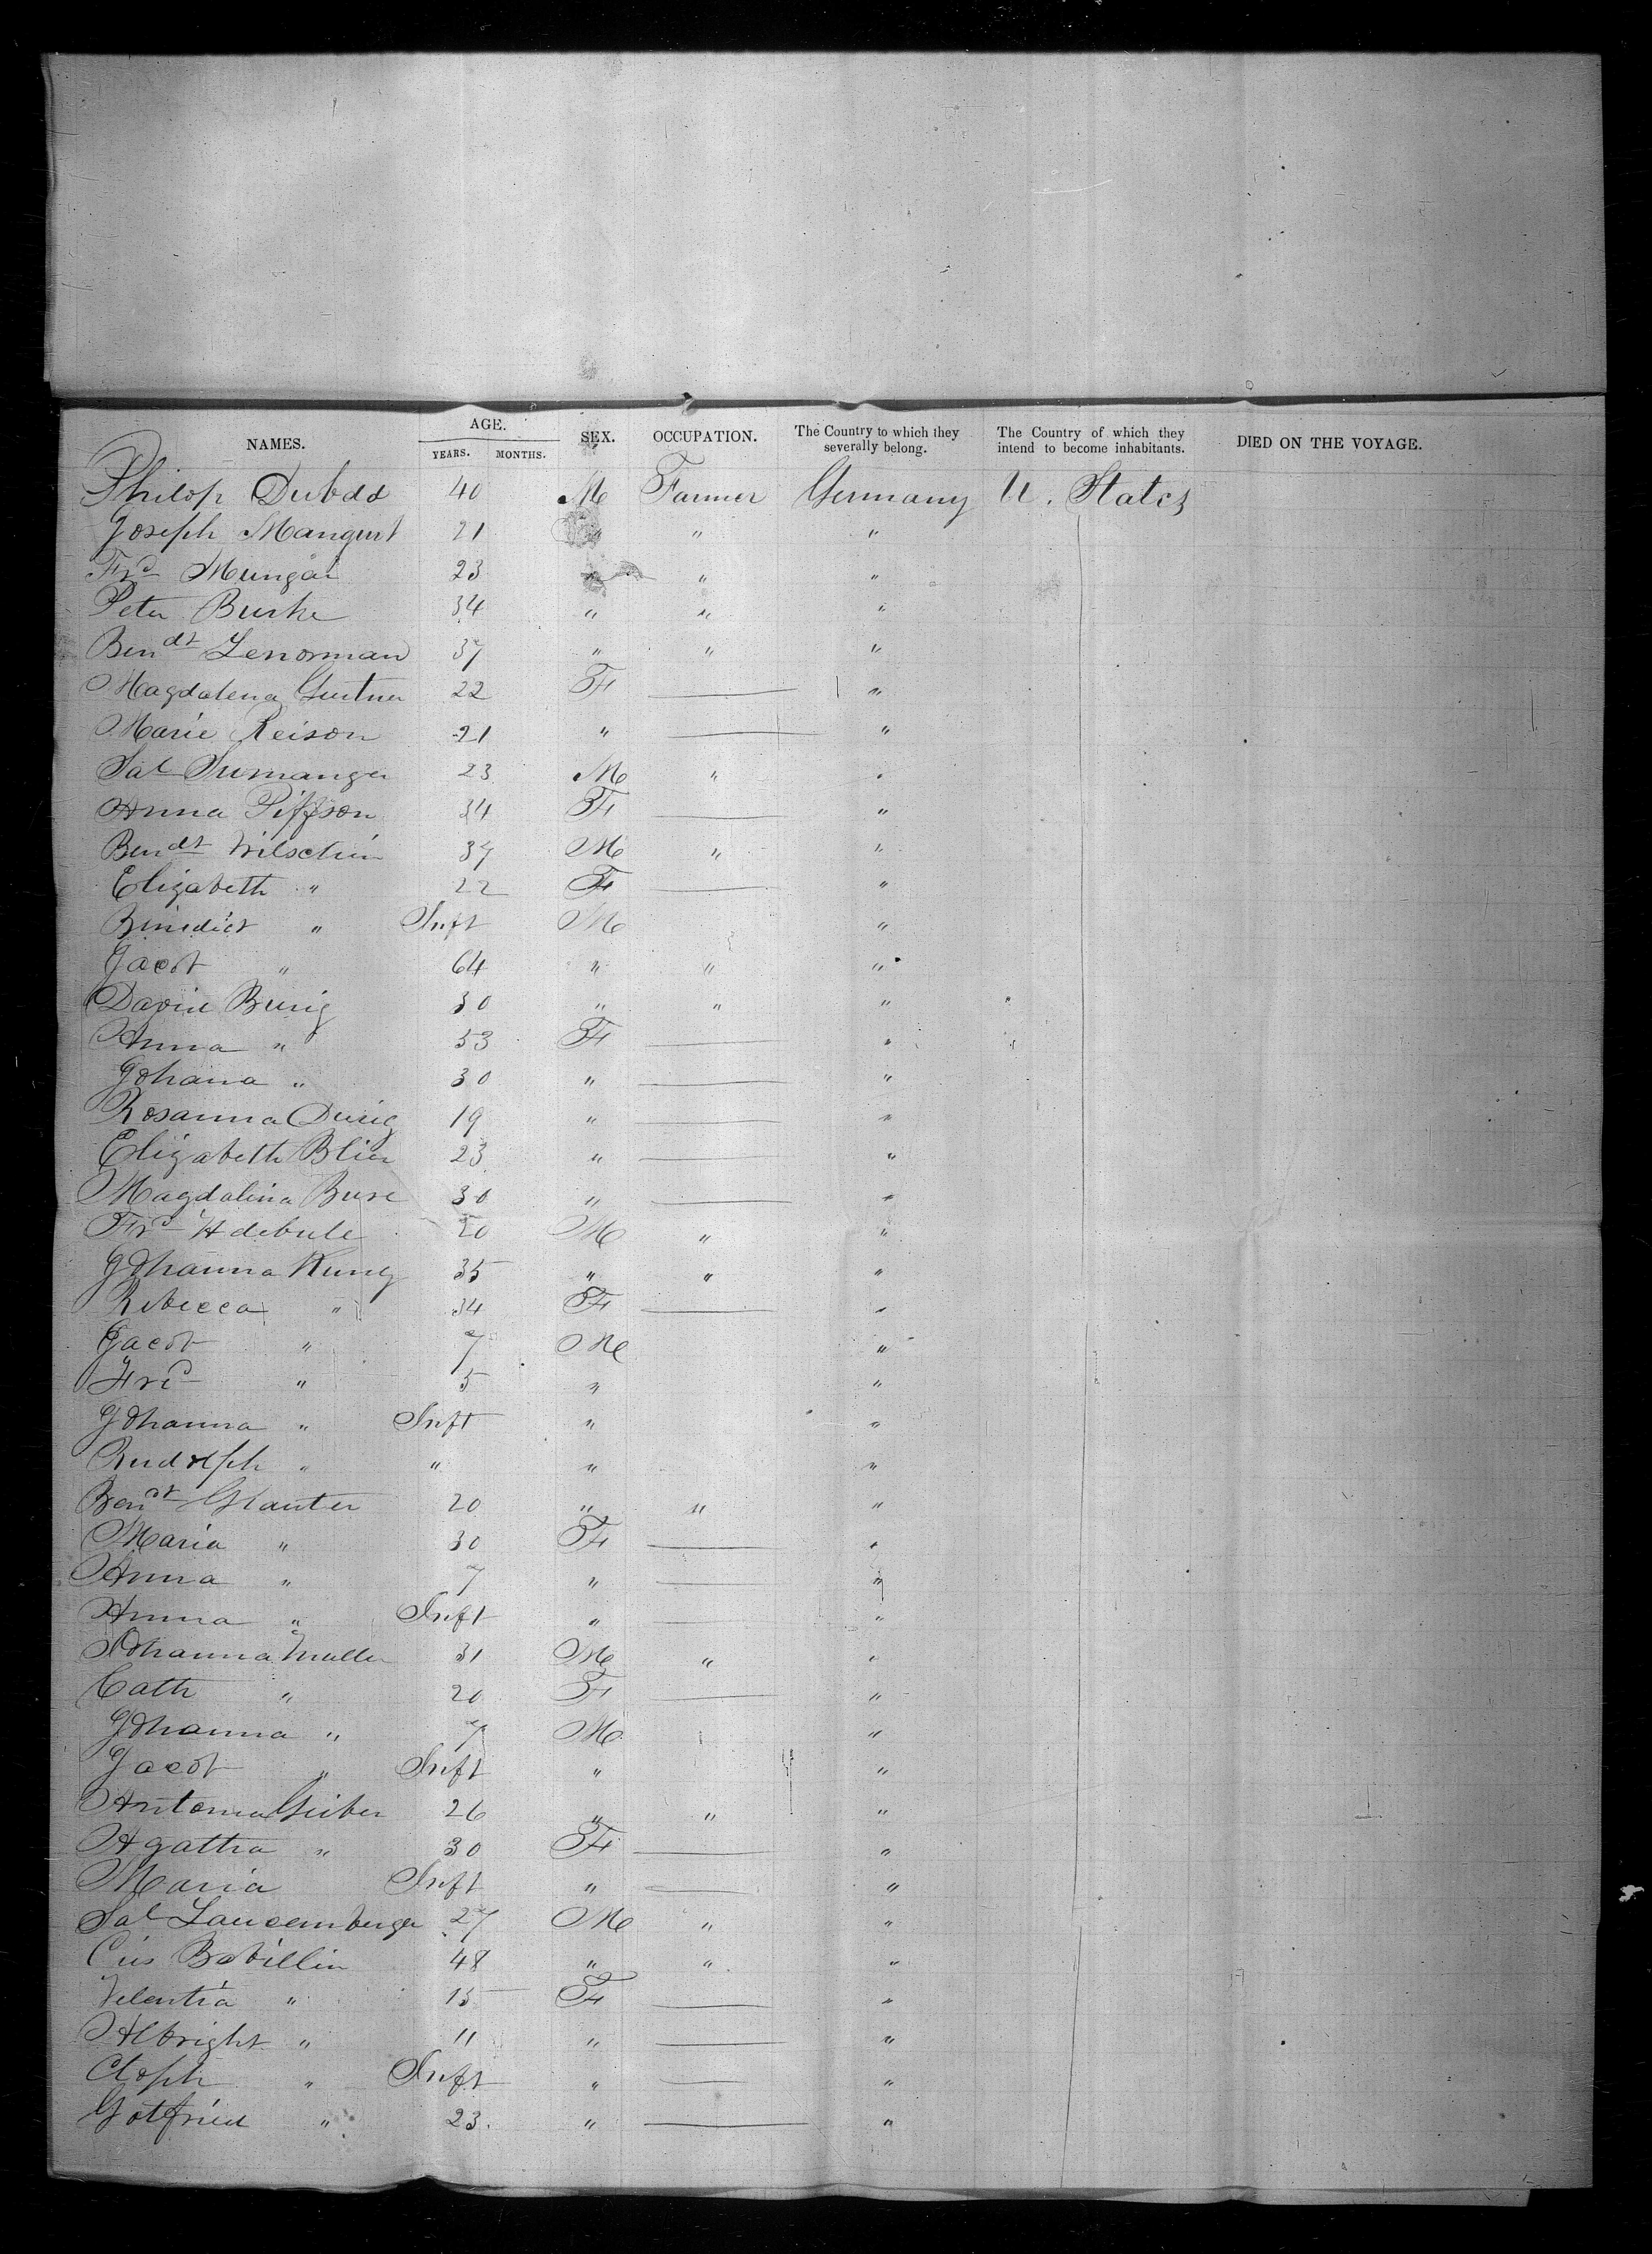 NAMES. AGE. SEX. OCCUPATION. The Country to which they severally belong. The Country of which they intend to become inhabitants. DIED ON THE VOYAGE.
YEARS. MONTHS.
Philop Dubdd 40 M Farmer Germany U. States
Joseph Mangurt 21 " " "
Frd Mungar 23 " " "
Peter Burke 34 " " "
Bendt Lenorman 37 " " "
Magdalena Gertner 22 F — "
Marie Reison 21 " — "
Sal Sumanger 23 M " "
Anna Piffson 34 F — "
Bendt Wilschin 37 M " "
Elizabeth " 22 F — "
Binedict " Inft M "
Jacob " 64 " " "
David Burig 30 " " "
Anna " 53 F — "
Johana " 30 " — "
Rosanna Durig 19 " — "
Elizabeth Blier 23 " — "
Magdalina Buse 30 " — "
Frd Hdebule 20 M " "
Johanna Kung 35 " " "
Rebecca " 34 F — "
Jacob " 7 M "
Frd " 5 " "
Johanna " Inft " "
Rudolph " " " "
Bendt Glauter 20 " " "
Maria " 30 F — "
Anna " 7 " — "
Anna " Inft " — "
Johanna Muller 31 M " "
Cath " 20 F — "
Johanna " 7 M "
Jacob " Inft " "
Antoma Geiber 26 " " "
Agatha " 30 F — "
Maria Inft " — "
Sal Lausemberger 27 M " "
Cris Bobillin 48 " " "
Velentia " 15 F — "
Albright " 11 " — "
Cloph " Inft " — "
Gotfried " 23 " — "